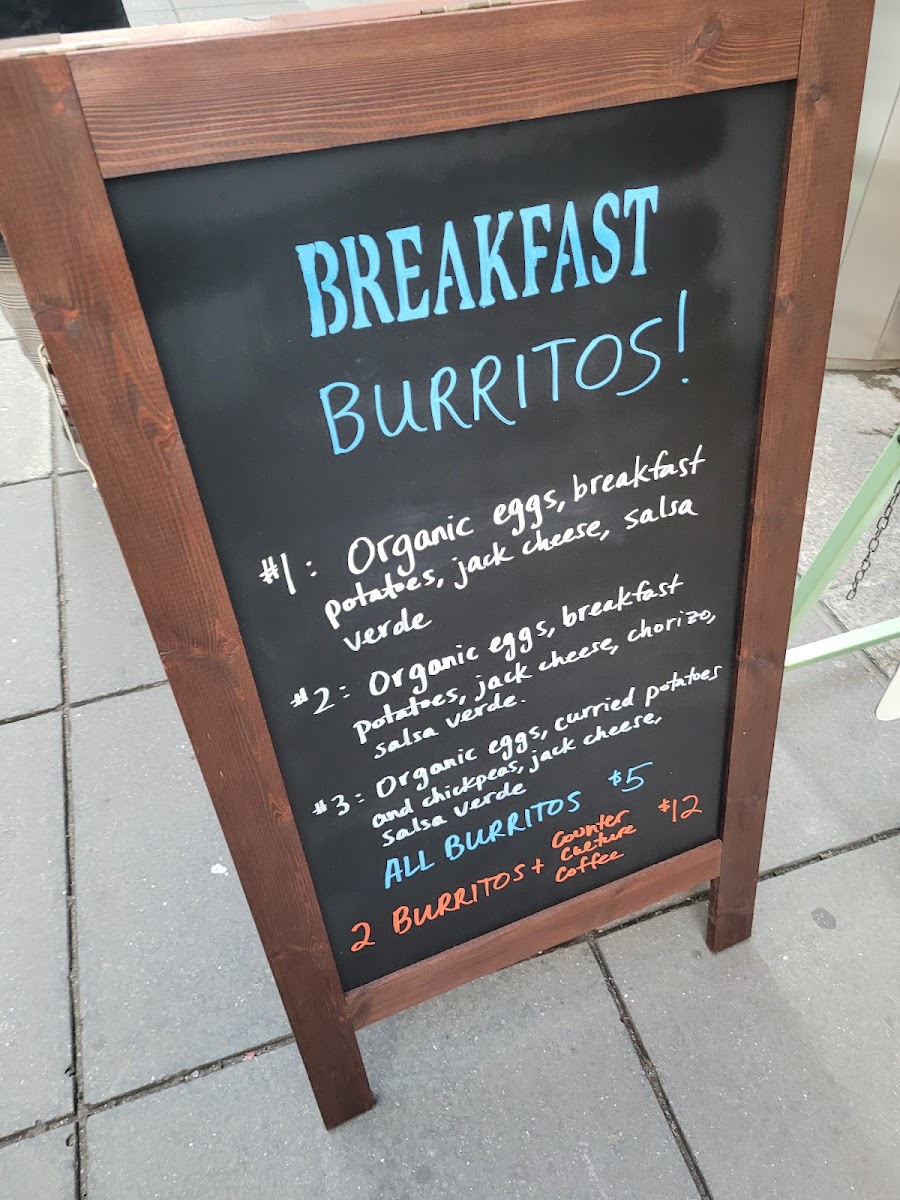 BREAKFAST
BURRITOS!
#1: Organic eggs, breakfast
potatoes, jack cheese, salsa
verde
#2: Organic eggs, breakfast
potatoes, jack cheese, chorizo,
salsa verde.
#3: Organic eggs, curried potatoes
and chickpeas, jack cheese,
salsa verde
ALL BURRITOS $5
2 BURRITOS + Counter
Culture
Coffee $12